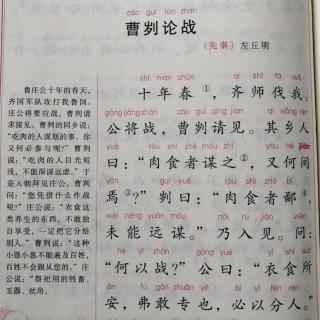 cáo guì lùn zhàn
曹刿论战
（先秦）左丘明
鲁庄公十年的春天，
齐国军队攻打我鲁国。
庄公将要应战，曹刿请
求接见。曹刿的同乡说：
“吃肉的人谋划的事，你
又何必参与呢？”曹刿
说：“吃肉的人目光短
浅，不能深谋远虑。”于
是入朝拜见庄公。曹刿
问：“您凭借什么作战
呢？”庄公说：“衣食这
类养生的东西，不敢独
自享受，一定把它分给
别人。”曹刿说：“这种
小恩小惠不能遍及百姓，
百姓不会跟从您的。”庄
公说：“祭祀用的牲畜、
玉器、丝帛，
shí nián chūn qí shī fá wǒ
十年春①，齐师伐我。
gōng jiāng zhàn cáo guì qǐng jiàn qí xiāng rén
公将战，曹刿请见。其乡人
yuē ròu shí zhě móu zhī yòu hé jiàn
曰：“肉食者谋之②，又何间
yān guì yuē ròu shí zhě bǐ
焉③？”刿曰：“肉食者鄙④
wèi néng yuǎn móu nǎi rù jiàn wèn
未能远谋。”乃入见。问：
hé yǐ zhàn gōng yuē yī shí suǒ
“何以战？”公曰：“衣食所
ān fú gǎn zhuān yě bì yǐ fēn rén
安，弗敢专也，必以分人。”